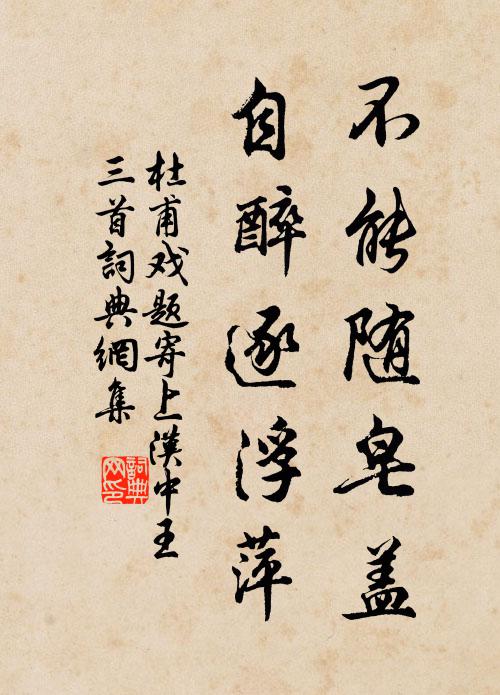 不能随皂盖
自醉逐浮萍
杜甫戏题寄上漢中王
三首詞典網集
詞典
网印